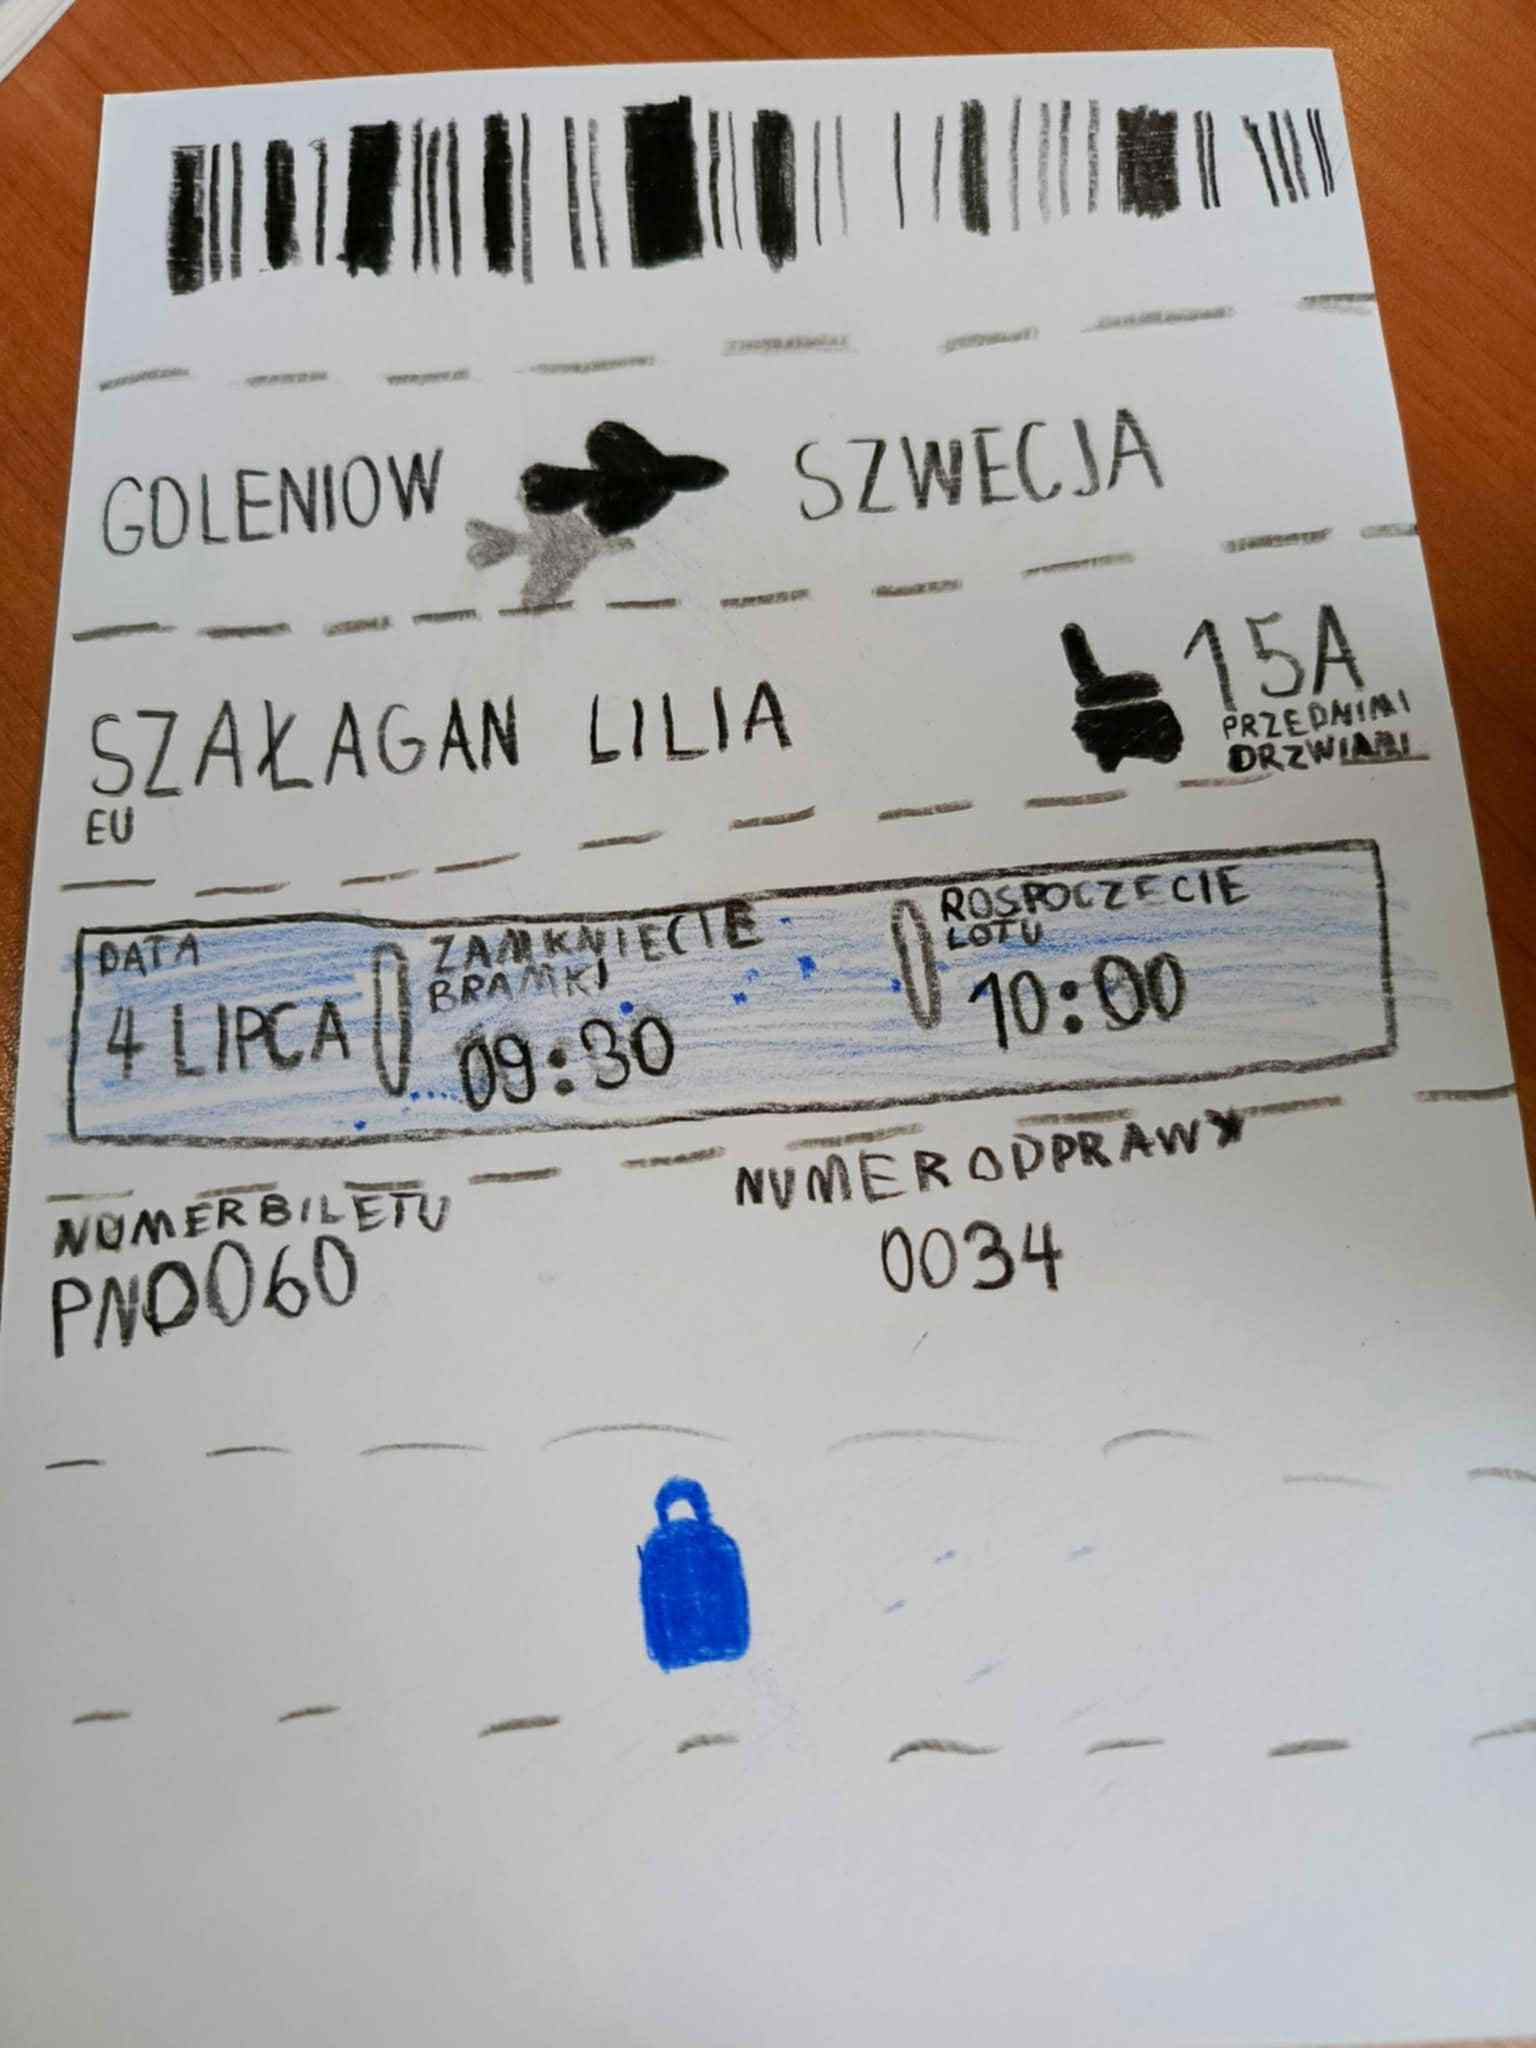 GOLENIOW SZWECJA
SZAŁAGAN LILIA
15A
EU
PRZEDNIMI
DRZWIAMI
DATA
4 LIPCA
ZAMKNIECIE
BRAMKI
09:30
ROSPOCZECIE
LOTU
10:00
NUMER BILETU
PN0060
NUMER ODPRAWY
0034